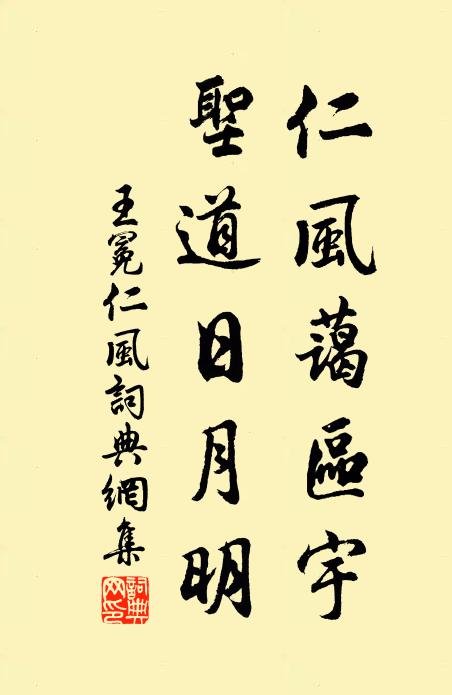 仁風藹區宇
聖道日月明
王冕仁風詞典網集
詞典網印